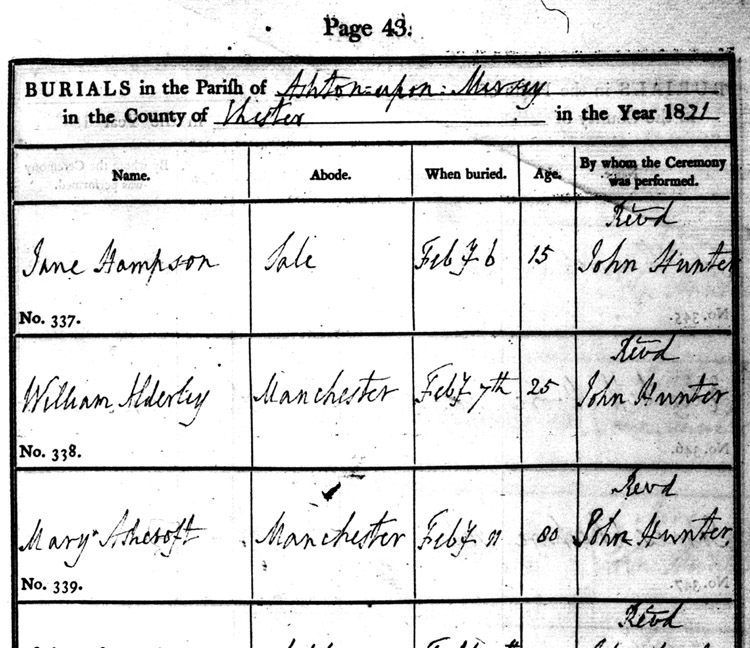 Page 43.
BURIALS in the Parish of Ashton-upon-Mersey
in the County of Chester in the Year 1821
Name. Abode. When buried. Age. By whom the Ceremony was performed.
Revd
Jane Hampson Sale Feby 6 15 John Hunter
No. 337.
Revd
William Alderley Manchester Feby 7th 25 John Hunter
No. 338.
Revd
Mary Ashcroft Manchester Feby 11 80 John Hunter
No. 339.
Revd